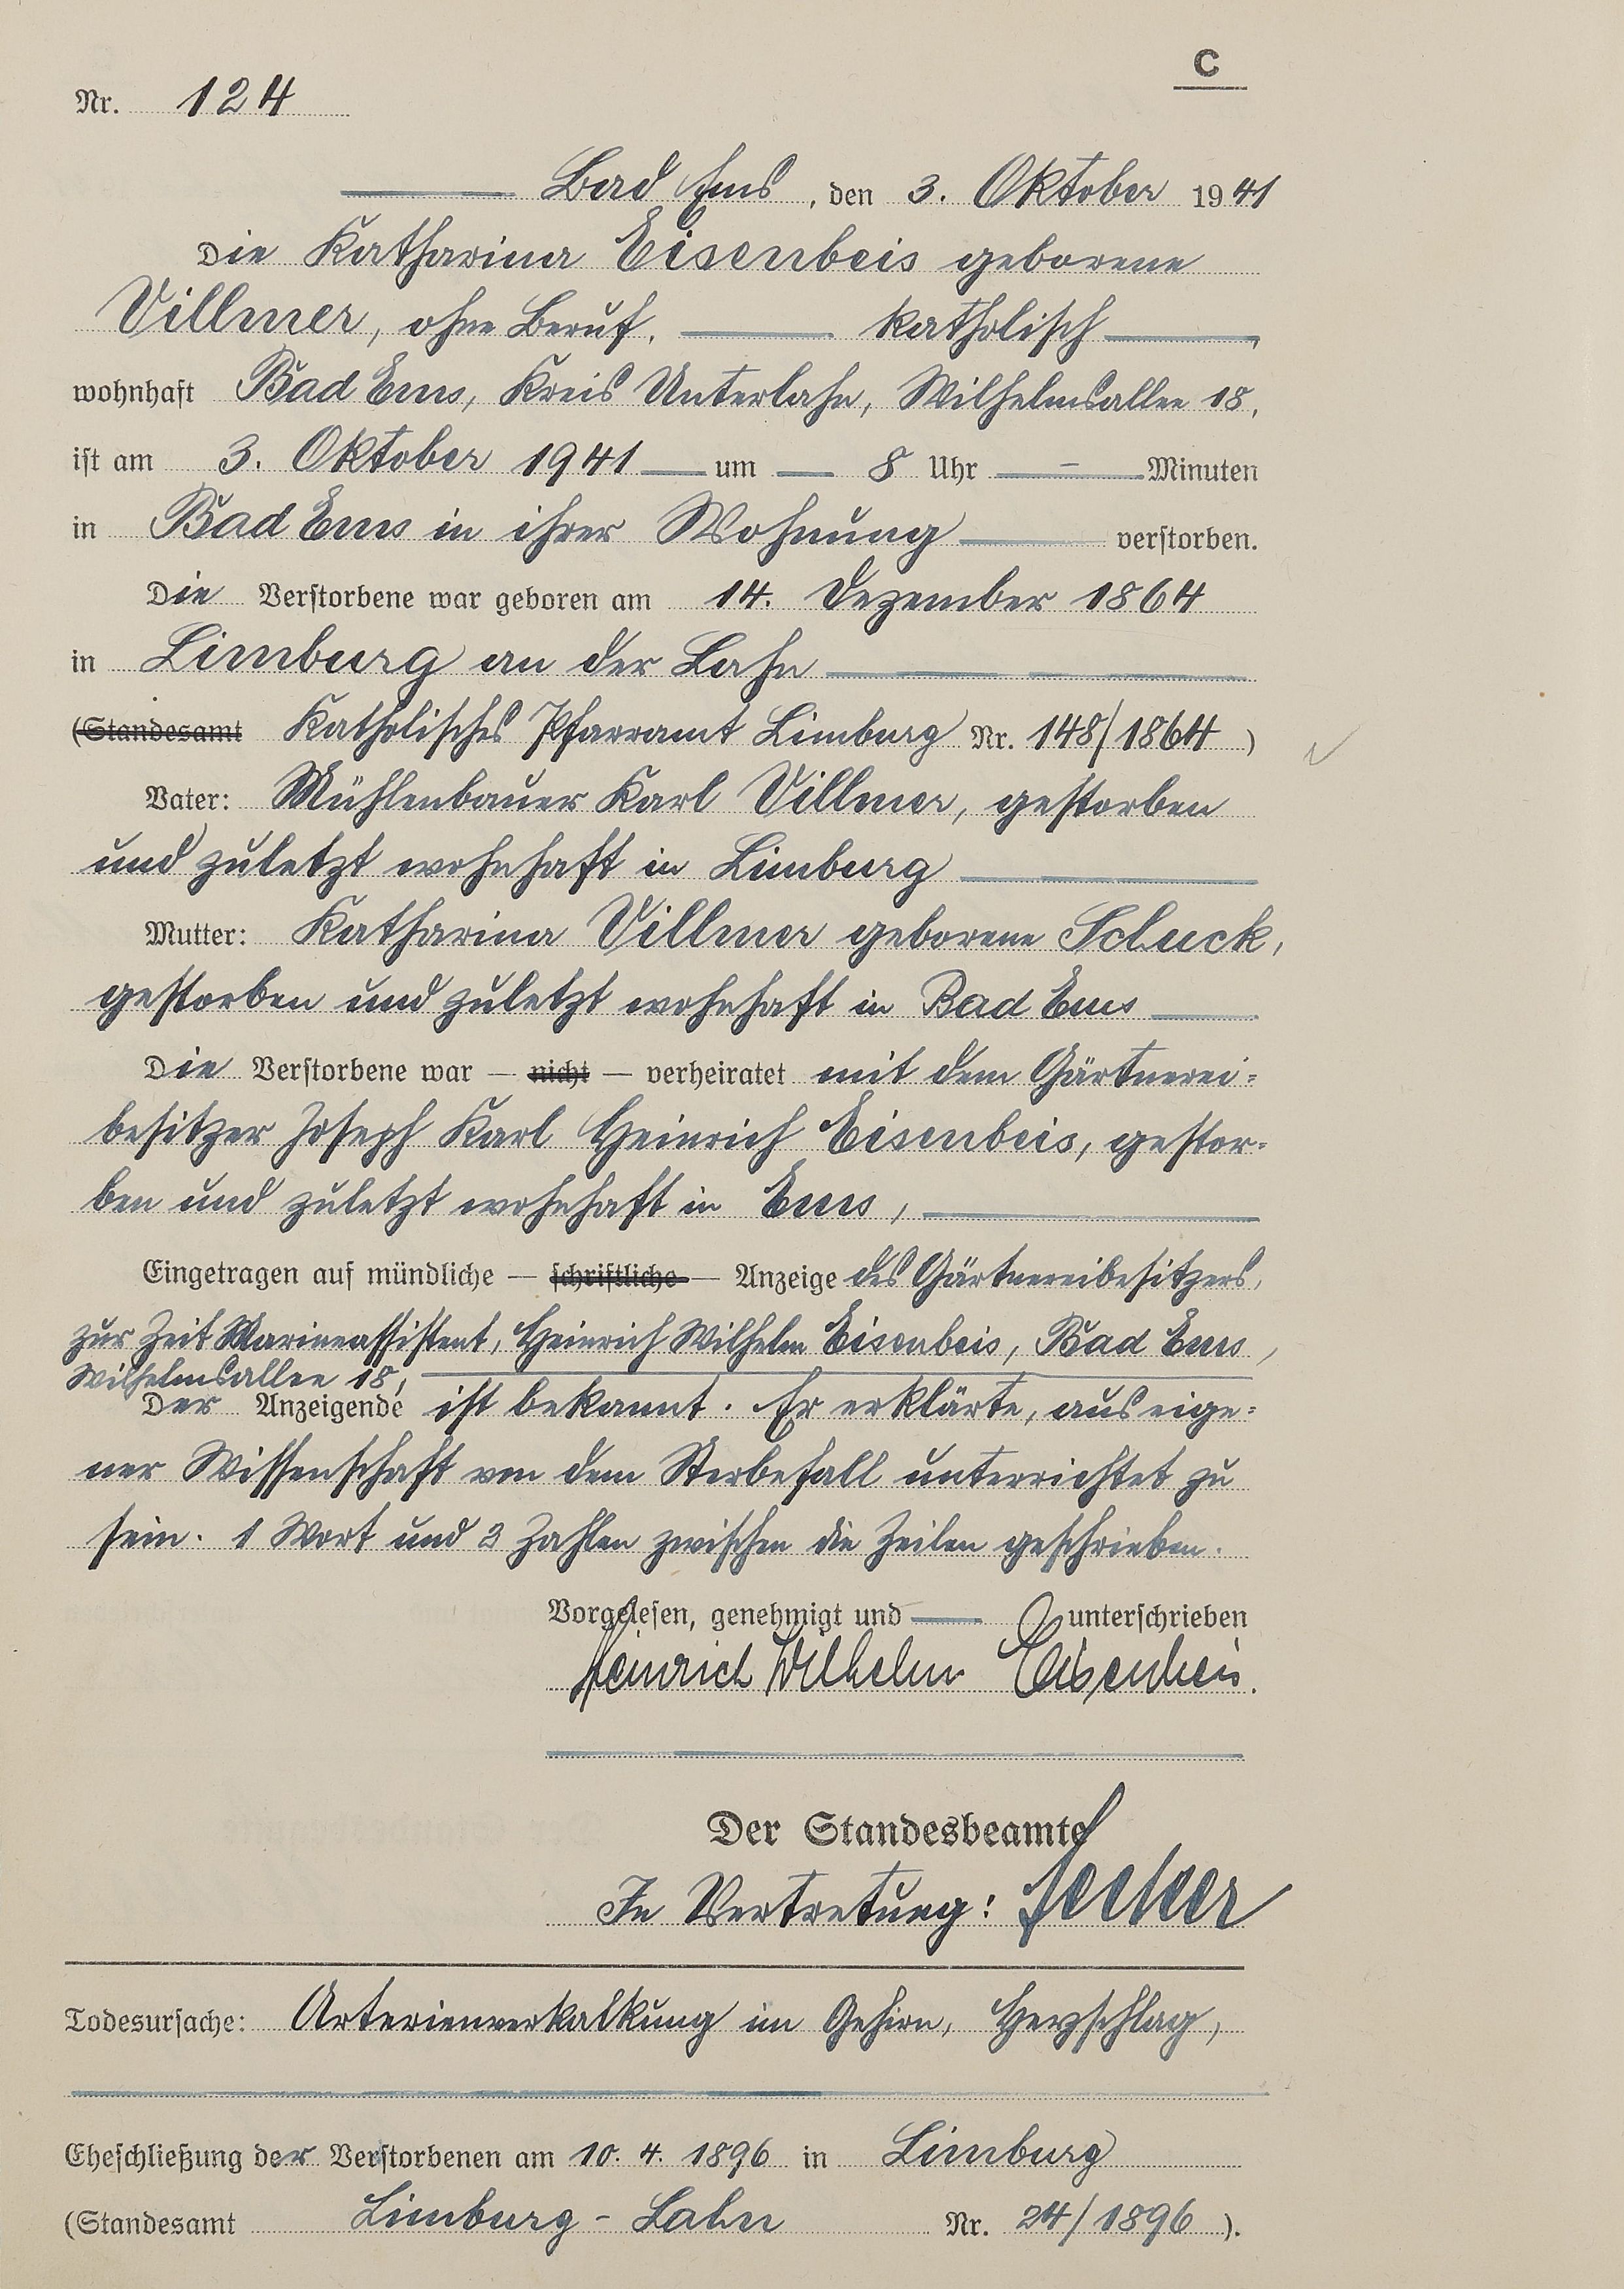 C
Nr. 124
Bad Ems, den 3. Oktober 1941
Die Katharina Eisenbeis geborene
Villmer, ohne Beruf, katholisch
wohnhaft Bad Ems, Kreis Unterlahn, Wilhelmsallee 18,
ist am 3. Oktober 1941 um 8 Uhr — Minuten
in Bad Ems in ihrer Wohnung verstorben.
Die Verstorbene war geboren am 14. Dezember 1864
in Limburg an der Lahn
(Standesamt Katholisches Pfarramt Limburg Nr. 148/1864)
Vater: Mühlenbauer Karl Villmer, gestorben
und zuletzt wohnhaft in Limburg
Mutter: Katharina Villmer geborene Schuck,
gestorben und zuletzt wohnhaft in Bad Ems
Die Verstorbene war — nicht — verheiratet mit dem Gärtnerei-
besitzer Joseph Karl Heinrich Eisenbeis, gestor-
ben und zuletzt wohnhaft in Ems,
Eingetragen auf mündliche — schriftliche — Anzeige des Gärtnereibesitzers,
zur Zeit Marineassistent, Heinrich Wilhelm Eisenbeis, Bad Ems,
Wilhelmsallee 18,
Der Anzeigende ist bekannt. Er erklärte, aus eige-
ner Wissenschaft von dem Sterbefall unterrichtet zu
sein. 1 Wort und 2 Zahlen zwischen die Zeilen geschrieben.
Vorgelesen, genehmigt und — unterschrieben
Heinrich Wilhelm Eisenbeis.
Der Standesbeamte
In Vertretung:
Todesursache: Arterienverkalkung im Gehirn, Herzschlag,
Eheschließung der Verstorbenen am 10. 4. 1896 in Limburg
(Standesamt Limburg - Lahn Nr. 24/1896).